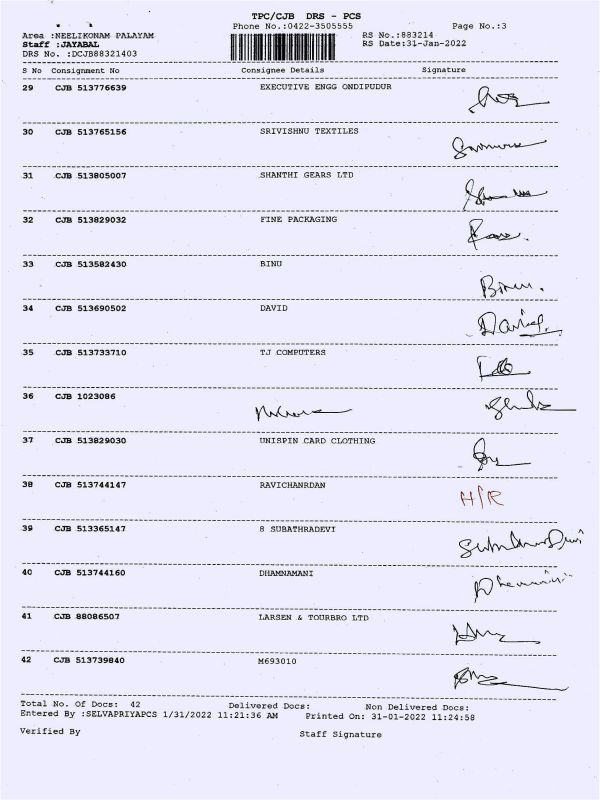 TPC/CJB DRS - PCS
Phone No.:0422-3505555 Page No.:3
Area :NEELIKONAM PALAYAM RS No.:883214
Staff :JAYABAL RS Date:31-Jan-2022
DRS No. :DCJB88321403
S No Consignment No Consignee Details Signature
29 CJB 513776639 EXECUTIVE ENGG ONDIPUDUR
30 CJB 513765156 SRIVISHNU TEXTILES
31 CJB 513805007 SHANTHI GEARS LTD
32 CJB 513829032 FINE PACKAGING
33 CJB 513582430 BINU
Binu.
34 CJB 513690502 DAVID
35 CJB 513733710 TJ COMPUTERS
36 CJB 1023086
37 CJB 513829030 UNISPIN CARD CLOTHING
38 CJB 513744147 RAVICHANRDAN H/R
39 CJB 513365147 8 SUBATHRADEVI
40 CJB 513744160 DHAMNAMANI
41 CJB 88086507 LARSEN & TOURBRO LTD
42 CJB 513739840 M693010
Total No. Of Docs: 42 Delivered Docs: Non Delivered Docs:
Entered By :SELVAPRIYAPCS 1/31/2022 11:21:36 AM Printed On: 31-01-2022 11:24:58
Verified By Staff Signature